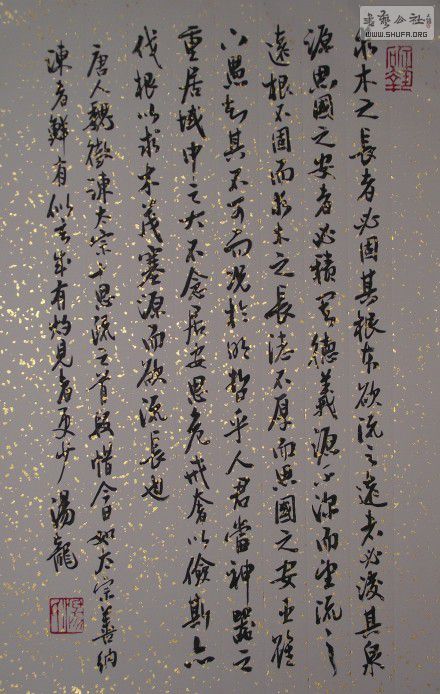 书艺公社
WWW.SHUFA.ORG
求木之長者必固其根本欲流之遠者必浚其泉
源思國之安者必積其德義源不深而望流之
遠根不固而求木之長德不厚而思國之安臣雖
下愚知其不可而況於明哲乎人君當神器之
重居域中之大不念居安思危戒奢以儉斯亦
伐根以求木茂塞源而欲流長也
唐人魏徵諫太宗十思疏之首段惜今日如太宗善納
諫者鮮有似玄成有灼見者更少 湯龍